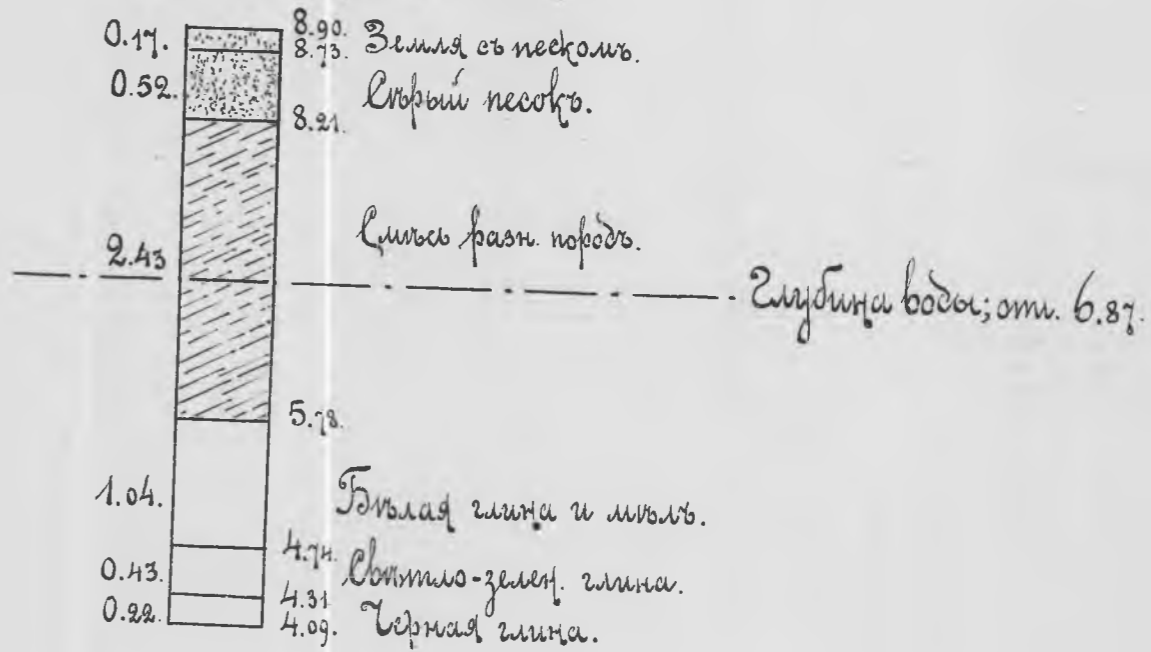 8.90.
0.17. Земля съ пескомъ.
8.73.
0.52. Сѣрый песокъ.
8.21.
Смѣсь разн. породъ.
2.43
Глубина воды; отм. 6.87.
5.78.
1.04. Бѣлая глина и мѣлъ.
4.74.
0.43. Свѣтло-зелен. глина.
4.31
0.22. Черная глина.
4.09.